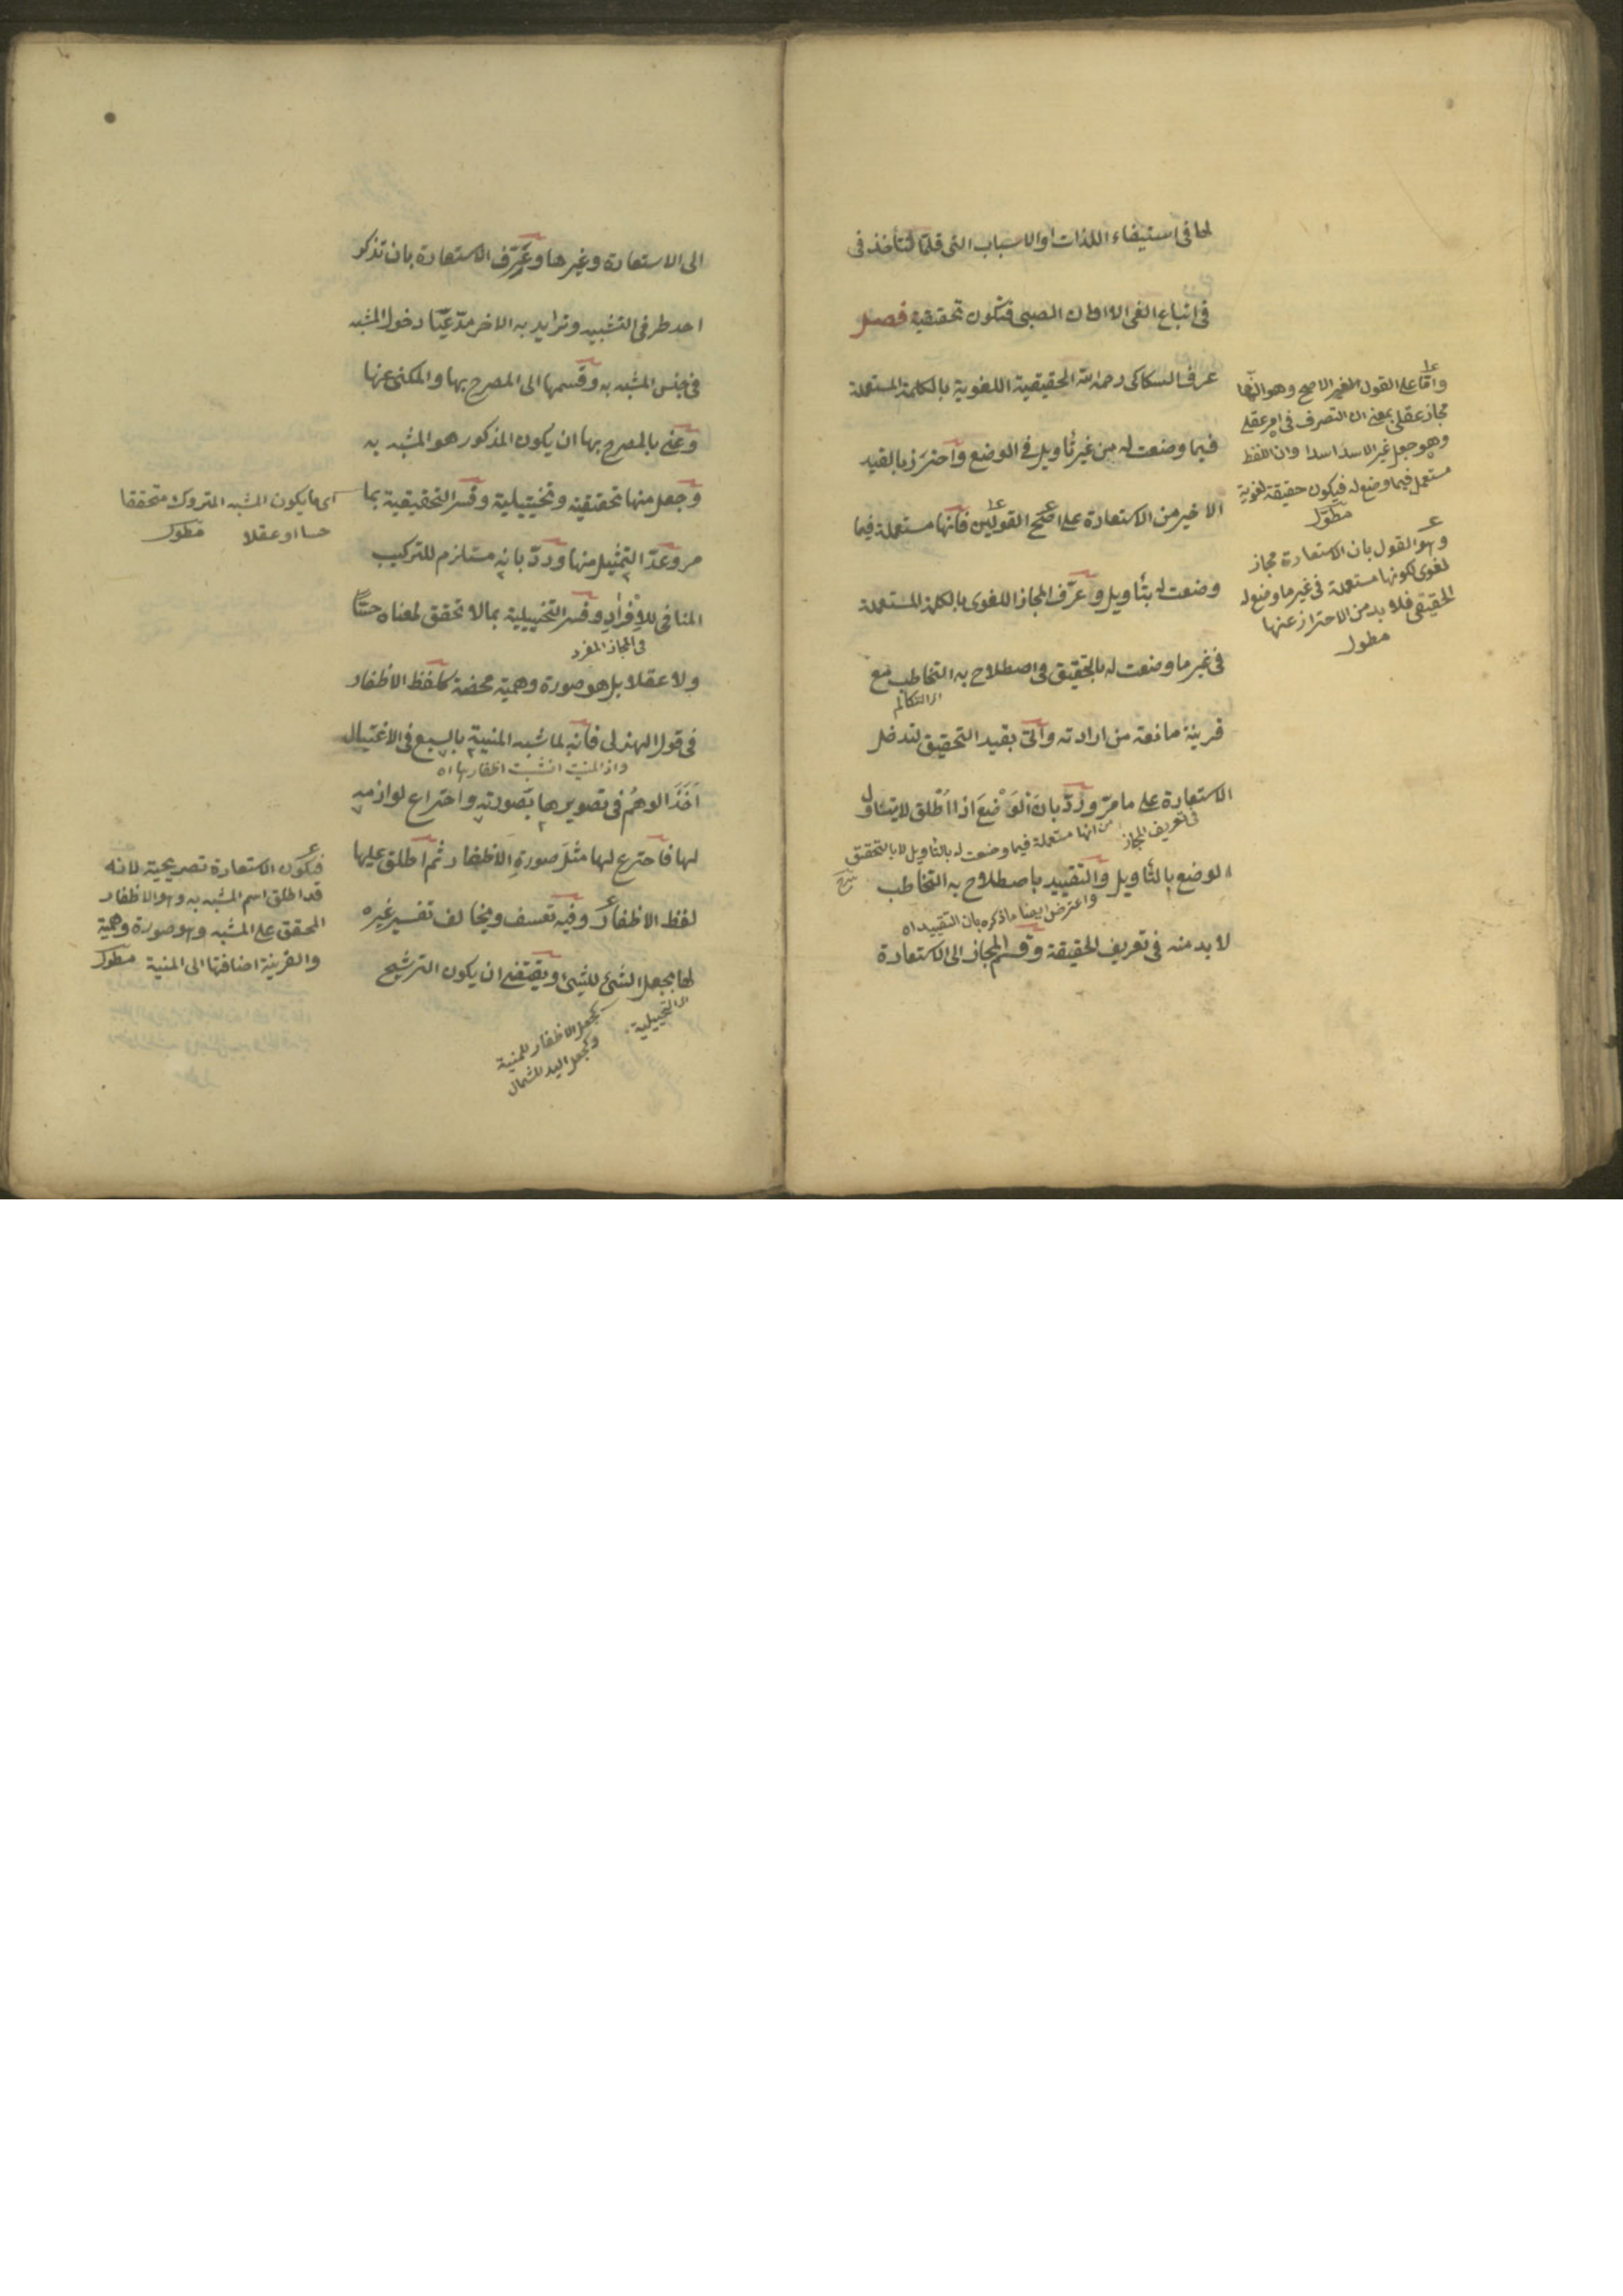 لها في استيفاء اللذات او الاسباب التي قلما تتأخذ في
في اتباع الغي الا اوان الصبى فتكون تحقيقية فصل
عرف السكاكي رحمه الله الحقيقية اللغوية بالكلمة المستعملة
فيما وضعت له من غير تأويل في الوضع واحترز بالقيد
الاخير من الاستعارة على اصح القولين فانها مستعملة فيما
وضعت له بتأويل وعرّف المجاز اللغوي بالكلمة المستعملة
في غير ما وضعت له بالتحقيق في اصطلاح به التخاطب مع
قرينة مانعة من ارادته واتى بقيد التحقيق لتدخل
الاستعارة على ما مرّ وردّ بان الوضع اذا اطلق لا يتناول
في تعريف المجاز
من انها مستعملة فيما وضعت له بالتأويل لا بالتحقيق
الوضع بالتأويل والتقييد باصطلاح به التخاطب
واعترض ايضا ما ذكره بان التقييد اه
لا بد منه في تعريف الحقيقة وقسم المجاز الى الاستعارة
واما على القول الغير الاصح وهو انها
مجاز عقلي بمعنى ان التصرف في امر عقلي
وهو جعل غير الاسد اسدا وان اللفظ
مستعمل فيما وضع له فيكون حقيقة لغوية
مطول
وهو القول بان الاستعارة مجاز
لغوي لكونها مستعملة في غير ما وضع له
الحقيقي فلا بد من الاحتراز عنها
مطول
الى الاستعارة وغيرها وعرّف الاستعارة بان تذكر
احد طرفي التشبيه وتريد به الاخر مدّعيّا دخول المشبه
في جنس المشبه به وقسمها الى المصرح بها والمكنى عنها
وعنى بالمصرح بها ان يكون المذكور هو المشبه به
وجعل منها تحقيقية وتخييلية وفسر التحقيقية بما
مر وعدّ التمثيل منها وردّ بانه مستلزم للتركيب
المنافي للإفراد وفسر التخييلية بما لا تحقق لمعناه حسّا
في المجاز المفرد
ولا عقلا بل هو صورة وهمية محضة كلفظ الاظفار
في قول الهذلي فانه لما شبه المنية بالسبع في الاغتيال
واذا المنية انشبت اظفارها اه
اخذ الوهم في تصويرها بصورته واختراع لوازمه
لها فاخترع لها مثل صورة الاظفار ثم اطلق عليها
لفظ الاظفار وفيه تعسف ويخالف تفسير غيره
لها بجعل الشئ للشئ ويقتضي ان يكون الترشيح
التخييلية
كجعل الاظفار للمنية
وكجعل اليد للشمال
اي ما يكون المشبه المتروك متحققا
حسا او عقلا مطول
فيكون الاستعارة تصريحية لانه
قد اطلق اسم المشبه به وهو الاظفار
المحقق على المشبه وهو صورة وهمية
والقرينة اضافتها الى المنية مطول